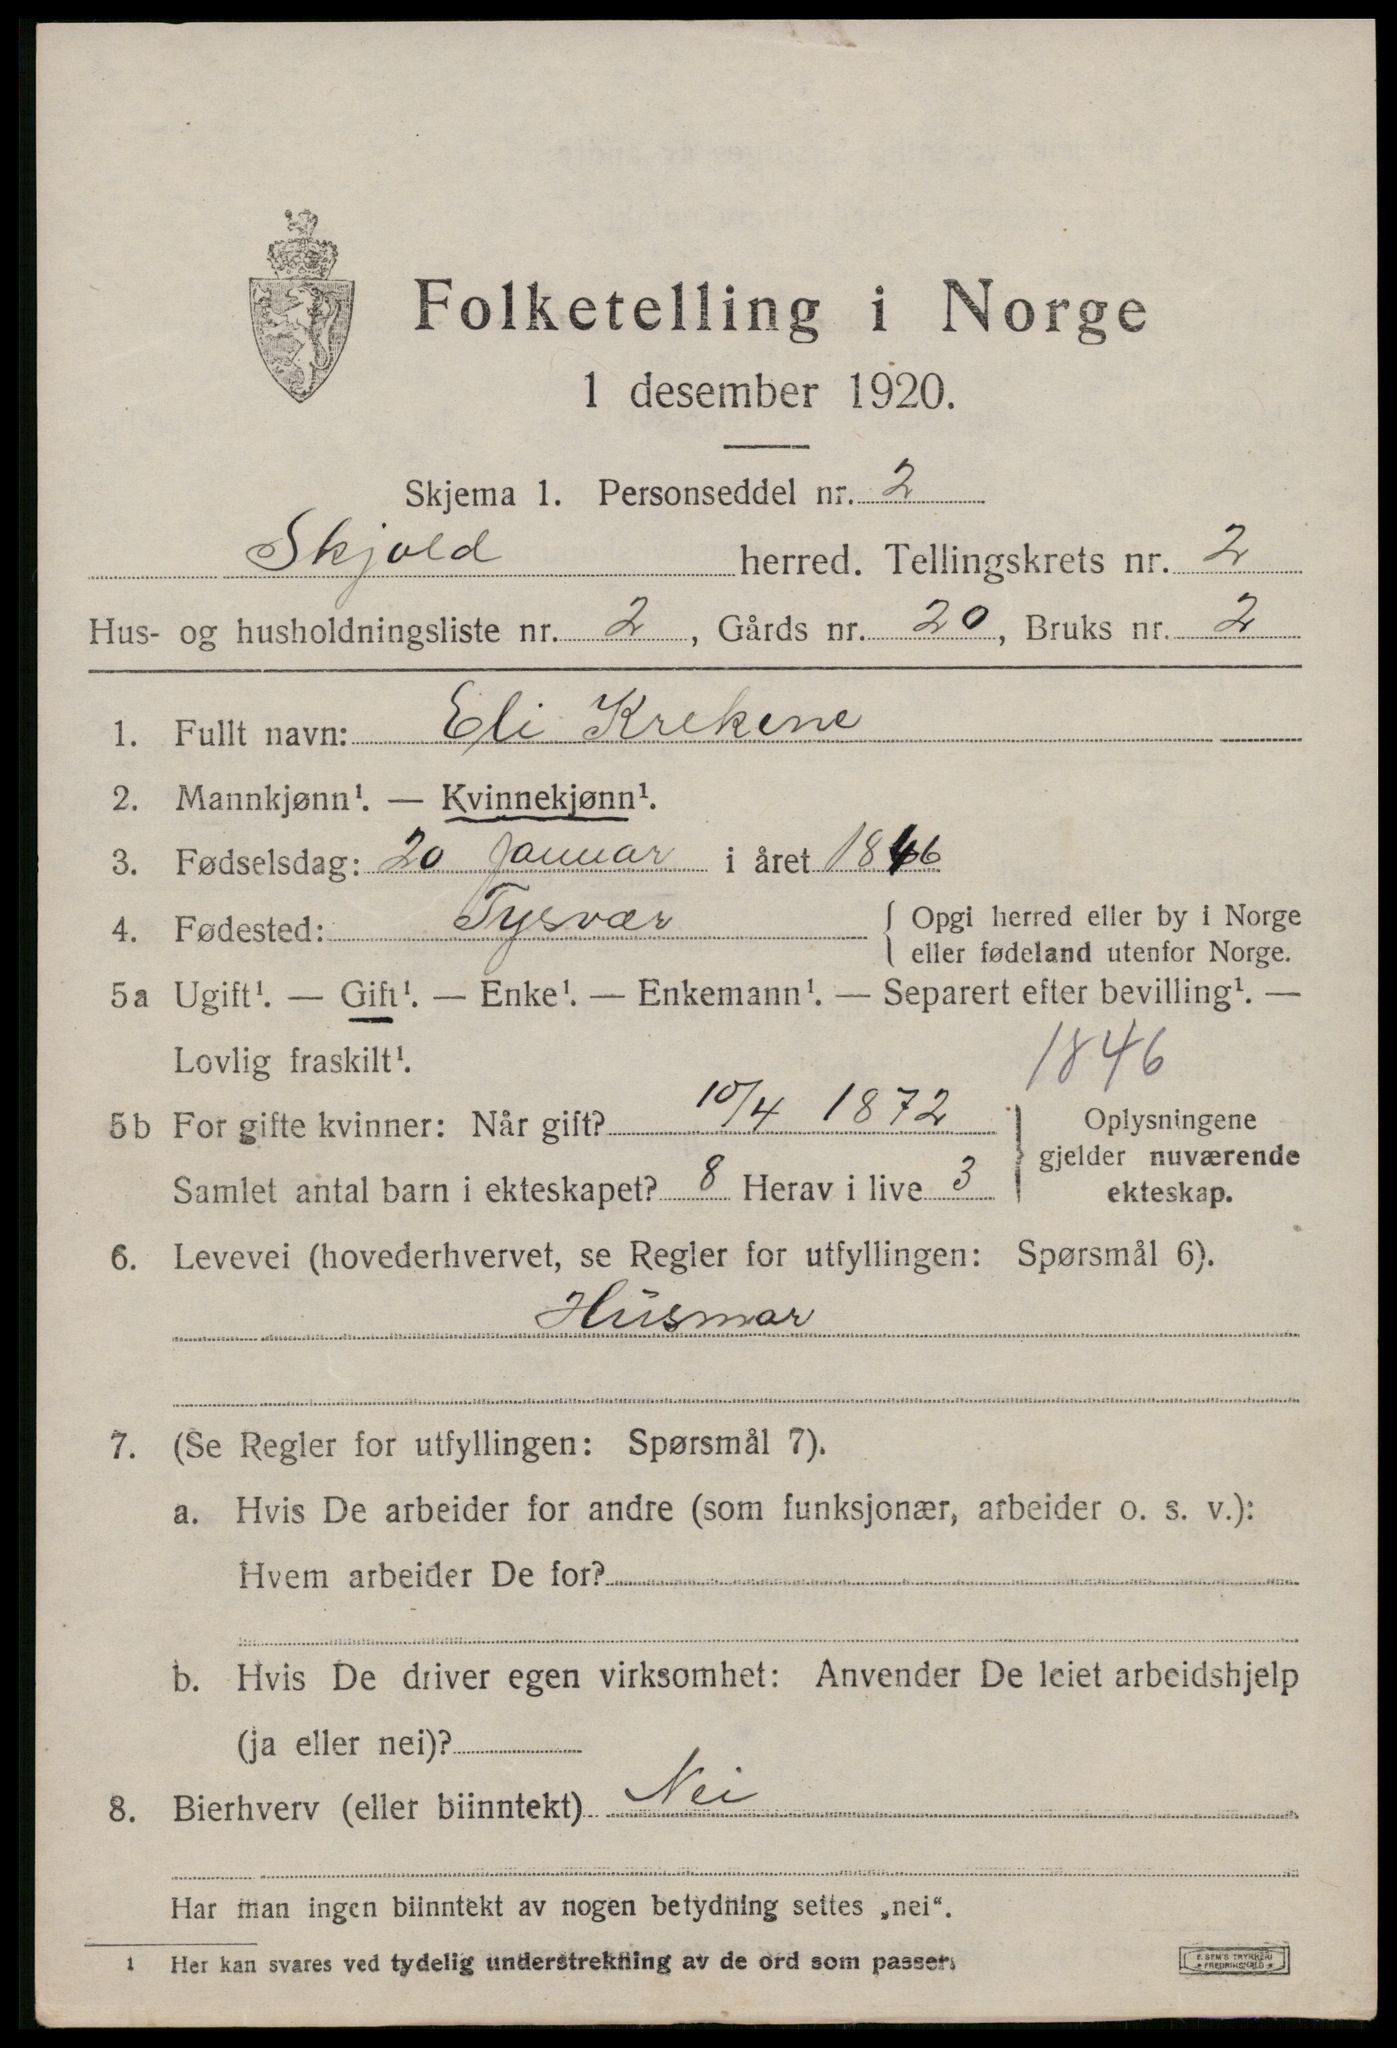 Folketelling i Norge
1 desember 1920.
Skjema 1. Personseddel nr. 2
Skjold herred. Tellingskrets nr. 2
Hus- og husholdningsliste nr. 2, Gårds nr. 20, Bruks nr. 2
1. Fullt navn: Eli Krekene
2. Mannkjønn¹. — Kvinnekjønn¹.
3. Fødselsdag: 20 Januar i året 1846
4. Fødested: Tysvær { Opgi herred eller by i Norge
eller fødeland utenfor Norge.
5a Ugift¹. — Gift¹. — Enke¹. — Enkemann¹. — Separert efter bevilling¹. —
Lovlig fraskilt¹. 1846
5b For gifte kvinner: Når gift? 10/4 1872
Samlet antal barn i ekteskapet? 8 Herav i live 3
Oplysningene
gjelder nuværende
ekteskap.
6. Levevei (hovederhvervet, se Regler for utfyllingen: Spørsmål 6).
Husmor
7. (Se Regler for utfyllingen: Spørsmål 7).
a. Hvis De arbeider for andre (som funksjonær, arbeider o. s. v.):
Hvem arbeider De for?
b. Hvis De driver egen virksomhet: Anvender De leiet arbeidshjelp
(ja eller nei)?
8. Bierhverv (eller biinntekt) Nei
Har man ingen biinntekt av nogen betydning settes „nei“.
1 Her kan svares ved tydelig understrekning av de ord som passer.
E. SEM'S TRYKKERI
FREDRIKSHALD